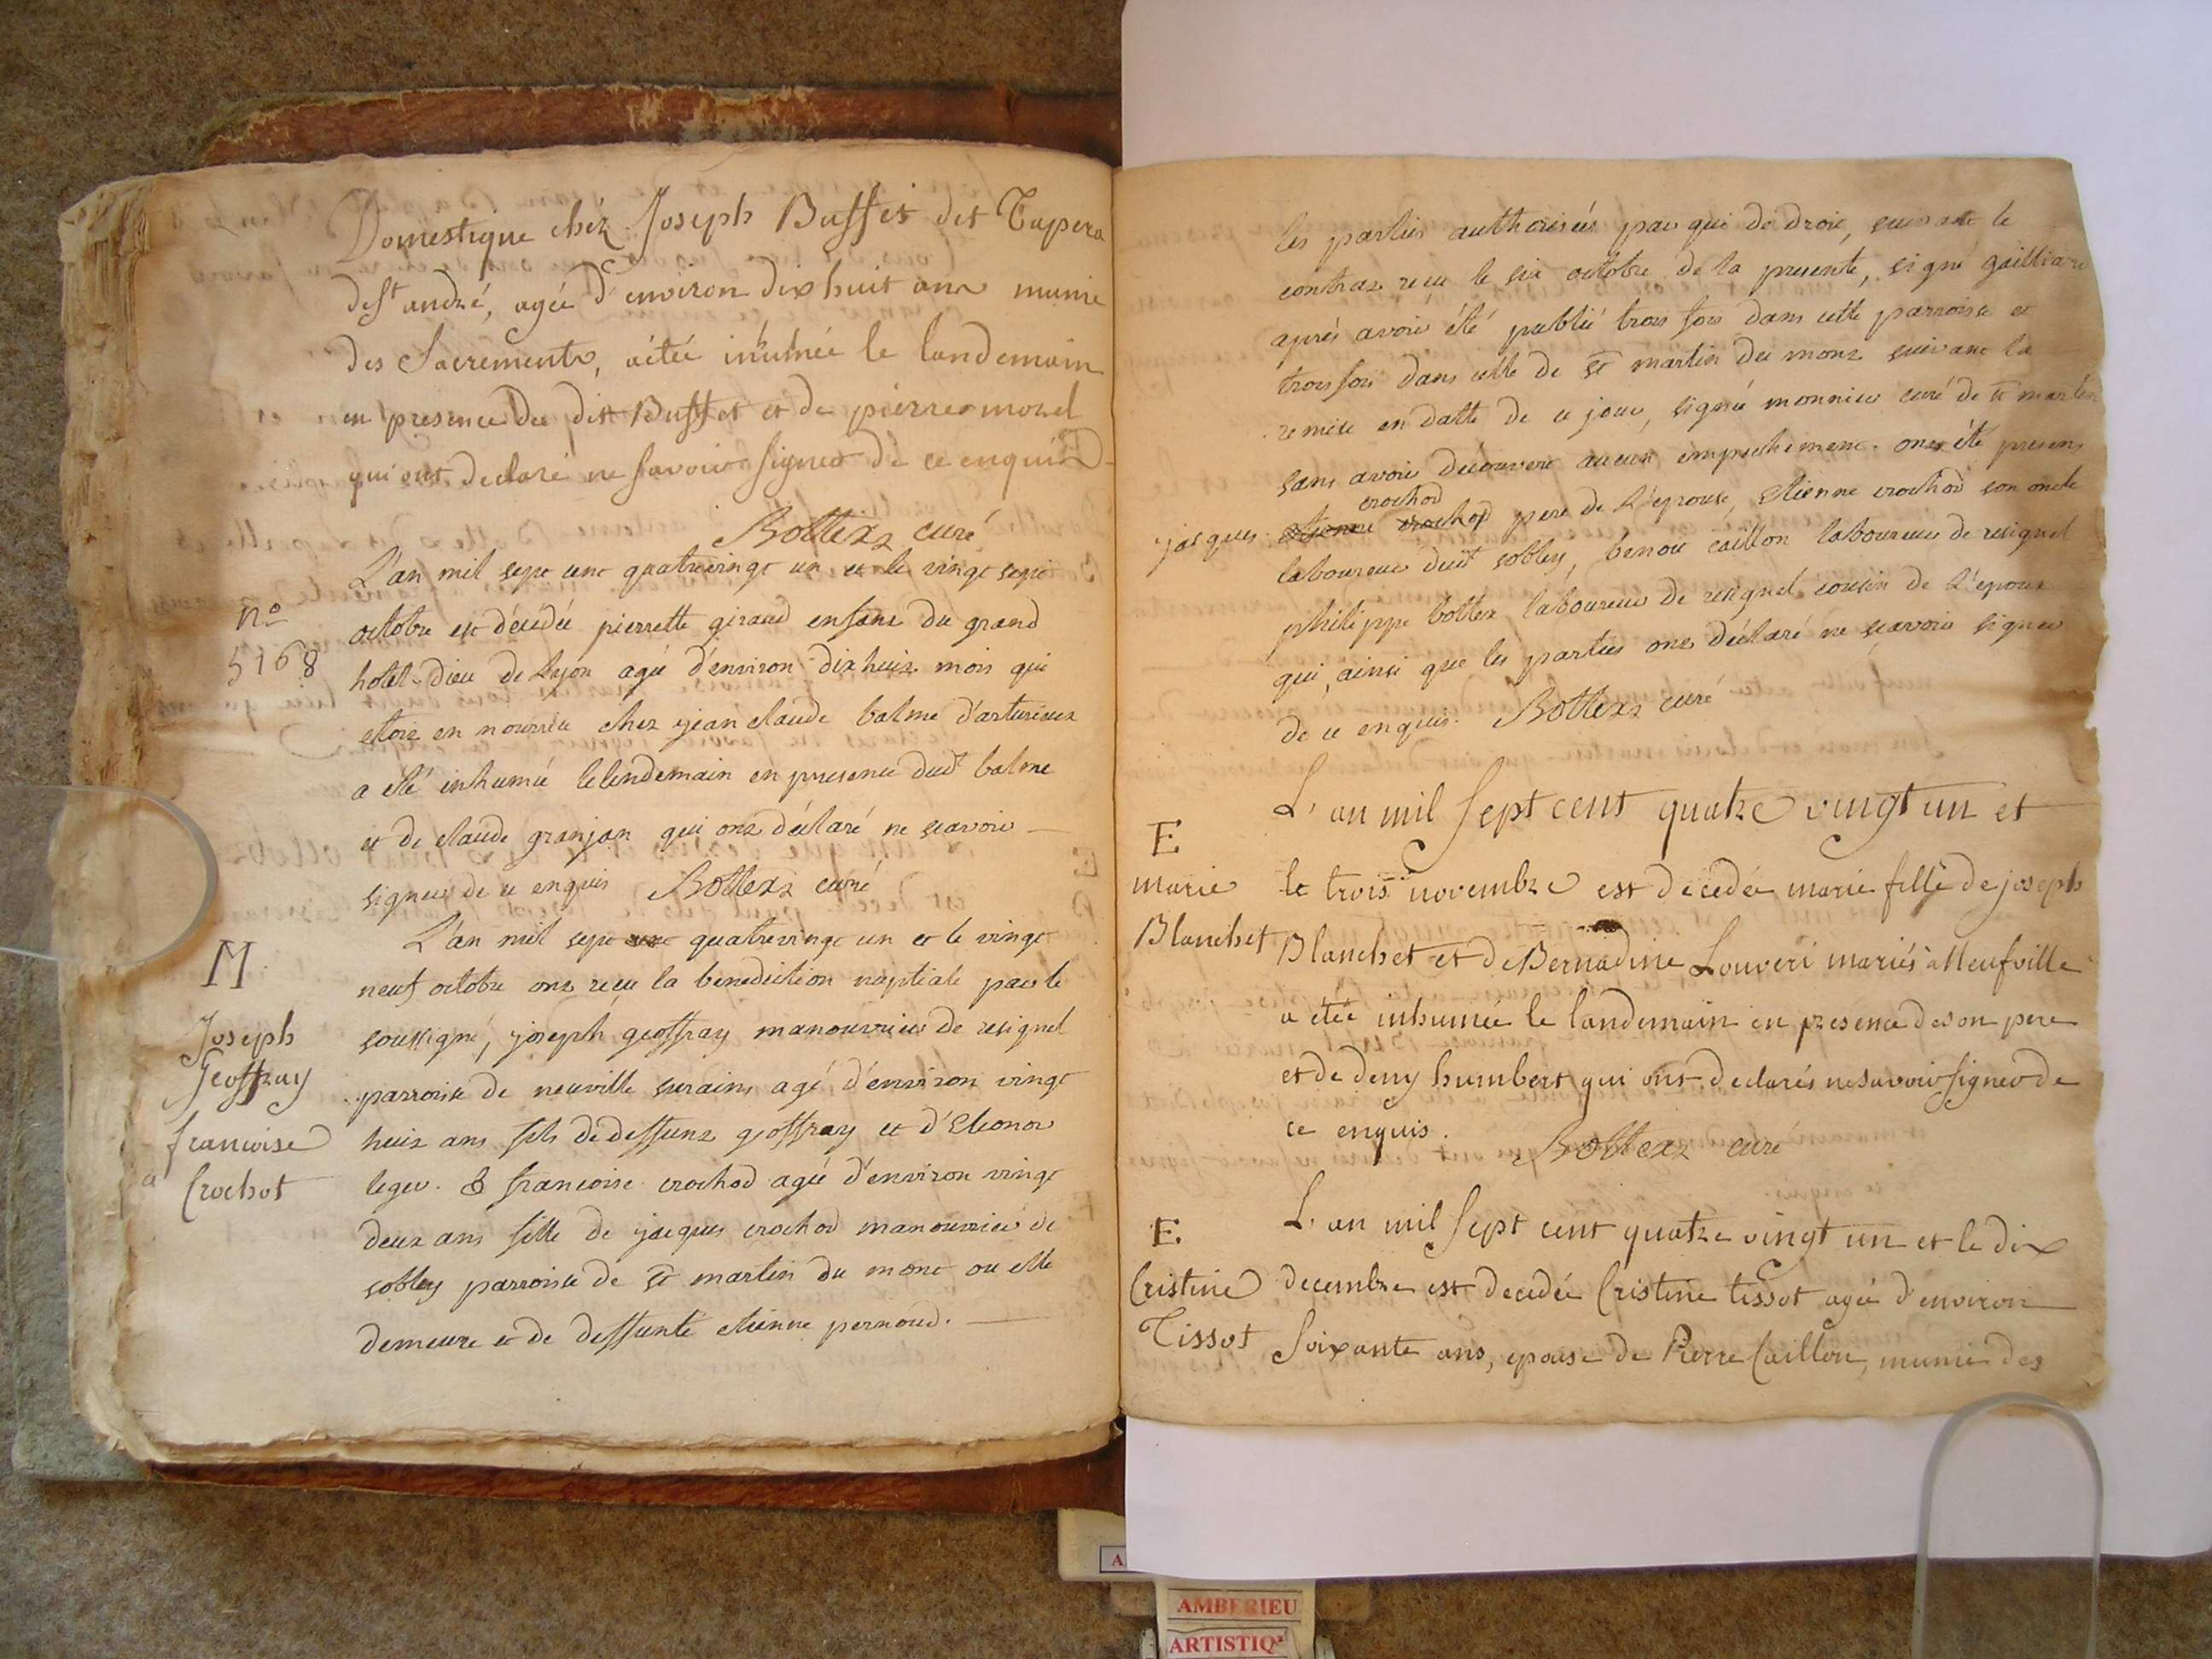 Domestique chéz Joseph Buffet dit Tapera
de St andré, agée d'environ dix huit ans munie
des Sacrements, a étée inhumée le landemain
en presence du dit Buffet et de pierre morel
qui ont declaré ne savoir signer de ce enquis
Bottex curé
L'an mil sept cent quatrevingt un et le vingt sept
n° octobre est décédée pierrette giraud enfant du grand
5168 hotel-dieu de Lyon agée d'environ dix huit mois qui
etoit en nourrice chez jean claude balme
a été inhumée le lendemain en presence dudt balme
et de claude granjan qui ont déclaré ne scavoir
signer de ce enquis Bottex curé
L'an mil sept cent quatrevingt un et le vingt
M neuf octobre ont reçu la benediction nuptiale par le
Joseph soussigné, joseph geoffray manouvrier de resignel
Geoffray parroisse de neuville surains agé d'environ vingt
francoise huit ans fils de deffunt geoffray et d'Eleonor
a Crochot leger. & francoise crochod agée d'environ vingt
deux ans fille de jacques crochod manouvrier de
sobley parroisse de st martin du mont ou elle
demeure et de deffunte etienne pernoud.
les parties authorisées par qui de droit, suivant le
contrat reçu le six octobre de la presente, signé gailliard
après avoir été publié trois fois dans cette parroisse et
trois fois dans celle de st martin du mont suivant la
remise en datte de ce jour, signée monnier curé de st martin
sans avoir découvert aucun empechement. ont été presens
crochod
jacques etienne crochod pere de L'epouse, etienne crochod son oncle
laboureur dudt sobley, benoit caillon laboureur de resignel
philippe bottex laboureur de resignel cousin de L'epoux
qui, ainsi que les parties ont déclaré ne scavoir signer
de ce enquis. Bottex curé
L'an mil sept cent quatre vingt un et
E
marie le trois novembre est décedée marie fille de joseph
Blanchet Blanchet et de Bernadine Louveri mariés a Neufville
a étée inhumée le landemain en presence de son pere
et de deny humbert qui ont declarés ne savoir signer de
ce enquis.
Bottex curé
L'an mil sept cent quatre vingt un et le dix
E
Cristine decembre est decedée Cristine tissot agée d'environ
Tissot Soixante ans, epouse de Pierre Caillon, munie des
A
AMBERIEU
ARTISTIQ